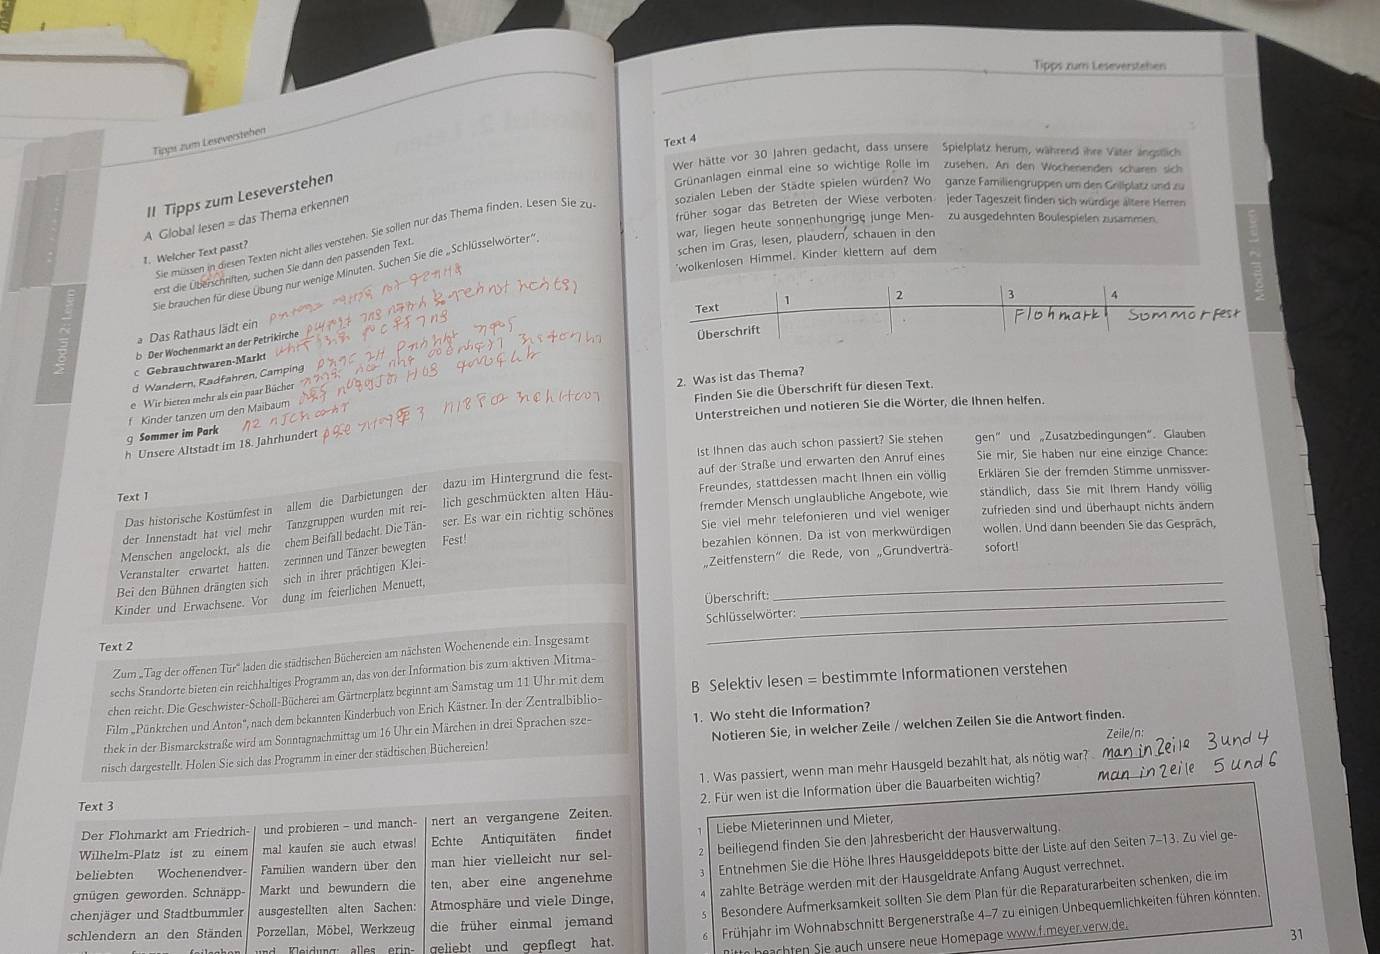 Tipps zum Leseverstehen
II Tipps zum Leseverstehen
A Global lesen = das Thema erkennen
1. Welcher Text passt?
Sie müssen in diesen Texten nicht alles verstehen. Sie sollen nur das Thema finden. Lesen Sie zu-
erst die Überschriften, suchen Sie dann den passenden Text.
Sie brauchen für diese Übung nur wenige Minuten. Suchen Sie die „Schlüsselwörter“.
a Das Rathaus lädt ein
b Der Wochenmarkt an der Petrikirche
c Gebrauchtwaren-Markt
d Wandern, Radfahren, Camping
e Wir bieten mehr als ein paar Bücher
f Kinder tanzen um den Maibaum
g Sommer im Park
h Unsere Altstadt im 18. Jahrhundert
Modul 2: Lesen
Text 1
Das historische Kostümfest in
der Innenstadt hat viel mehr
Menschen angelockt, als die
Veranstalter erwartet hatten.
Bei den Bühnen drängten sich
Kinder und Erwachsene. Vor
allem die Darbietungen der
Tanzgruppen wurden mit rei-
chem Beifall bedacht. Die Tän-
zerinnen und Tänzer bewegten
sich in ihrer prächtigen Klei-
dung im feierlichen Menuett,
dazu im Hintergrund die fest-
lich geschmückten alten Häu-
ser. Es war ein richtig schönes
Fest!
Text 2
Zum „Tag der offenen Tür“ laden die städtischen Büchereien am nächsten Wochenende ein. Insgesamt
sechs Standorte bieten ein reichhaltiges Programm an, das von der Information bis zum aktiven Mitma-
chen reicht. Die Geschwister-Scholl-Bücherei am Gärtnerplatz beginnt am Samstag um 11 Uhr mit dem
Film „Pünktchen und Anton“, nach dem bekannten Kinderbuch von Erich Kästner. In der Zentralbiblio-
thek in der Bismarckstraße wird am Sonntagnachmittag um 16 Uhr ein Märchen in drei Sprachen sze-
nisch dargestellt. Holen Sie sich das Programm in einer der städtischen Büchereien!
Text 3
Der Flohmarkt am Friedrich-
Wilhelm-Platz ist zu einem
beliebten Wochenendver-
gnügen geworden. Schnäpp-
chenjäger und Stadtbummler
schlendern an den Ständen
und probieren – und manch-
mal kaufen sie auch etwas!
Familien wandern über den
Markt und bewundern die
ausgestellten alten Sachen:
Porzellan, Möbel, Werkzeug
und Kleidung: alles erin-
nert an vergangene Zeiten.
Echte Antiquitäten findet
man hier vielleicht nur sel-
ten, aber eine angenehme
Atmosphäre und viele Dinge,
die früher einmal jemand
geliebt und gepflegt hat.
Tipps zum Leseverstehen
Text 4
Wer hätte vor 30 Jahren gedacht, dass unsere
Grünanlagen einmal eine so wichtige Rolle im
sozialen Leben der Städte spielen würden? Wo
früher sogar das Betreten der Wiese verboten
war, liegen heute sonnenhungrige junge Men-
schen im Gras, lesen, plaudern, schauen in den
wolkenlosen Himmel. Kinder klettern auf dem
Spielplatz herum, während ihre Väter ängstlich
zusehen. An den Wochenenden scharen sich
ganze Familiengruppen um den Grillplatz und zu
jeder Tageszeit finden sich würdige ältere Herren
zu ausgedehnten Boulespielen zusammen.
Modul 2: Lesen
Text 1 2 3 4
Überschrift Flohmarkt Sommorfest
2. Was ist das Thema?
Finden Sie die Überschrift für diesen Text.
Unterstreichen und notieren Sie die Wörter, die Ihnen helfen.
Ist Ihnen das auch schon passiert? Sie stehen
auf der Straße und erwarten den Anruf eines
Freundes, stattdessen macht Ihnen ein völlig
fremder Mensch unglaubliche Angebote, wie
Sie viel mehr telefonieren und viel weniger
bezahlen können. Da ist von merkwürdigen
„Zeitfenstern“ die Rede, von „Grundverträ-
gen“ und „Zusatzbedingungen“. Glauben
Sie mir, Sie haben nur eine einzige Chance:
Erklären Sie der fremden Stimme unmissver-
ständlich, dass Sie mit Ihrem Handy völlig
zufrieden sind und überhaupt nichts ändern
wollen. Und dann beenden Sie das Gespräch,
sofort!
Überschrift:
Schlüsselwörter:
B Selektiv lesen = bestimmte Informationen verstehen
1. Wo steht die Information?
Notieren Sie, in welcher Zeile / welchen Zeilen Sie die Antwort finden.
Zeile/n:
1. Was passiert, wenn man mehr Hausgeld bezahlt hat, als nötig war? man in Zeile 3 und 4
2. Für wen ist die Information über die Bauarbeiten wichtig? man in zeile 5 und 6
1 Liebe Mieterinnen und Mieter,
2 beiliegend finden Sie den Jahresbericht der Hausverwaltung.
3 Entnehmen Sie die Höhe Ihres Hausgelddepots bitte der Liste auf den Seiten 7–13. Zu viel ge-
4 zahlte Beträge werden mit der Hausgeldrate Anfang August verrechnet.
5 Besondere Aufmerksamkeit sollten Sie dem Plan für die Reparaturarbeiten schenken, die im
6 Frühjahr im Wohnabschnitt Bergenerstraße 4–7 zu einigen Unbequemlichkeiten führen könnten.
Bitte beachten Sie auch unsere neue Homepage www.f.meyer.verw.de.
31